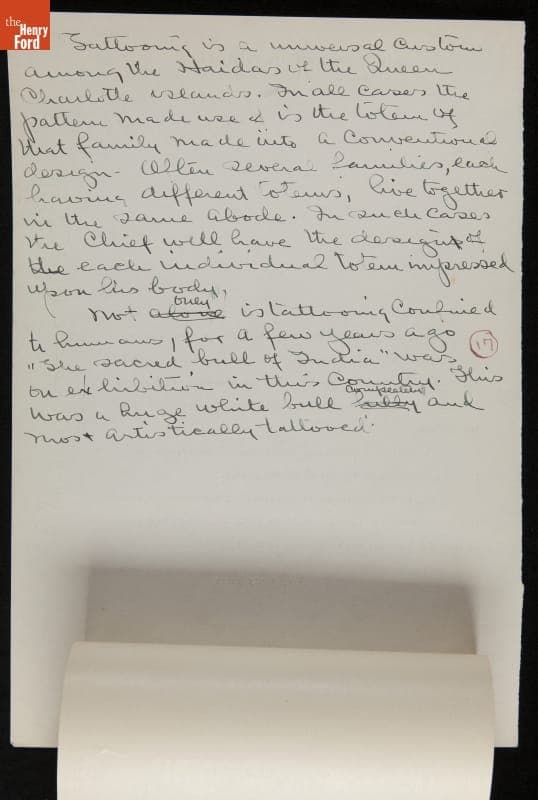 the
Henry
Ford
Tattooing is a universal custom
among the Haidas of the Queen
Charlotte islands. In all cases the
pattern made use of is the totem of
that family made into a conventional
design. Often several families, each
having different totems, live together
in the same abode. In such cases
the Chief will have the designs of
the each individual totem impressed
upon his body.
only
Not alone is tattooing confined
to humans, for a few years ago
17
"The sacred bull of India" was
on exhibition in this country. This
completely
was a huge white bull fully and
most artistically tattooed.